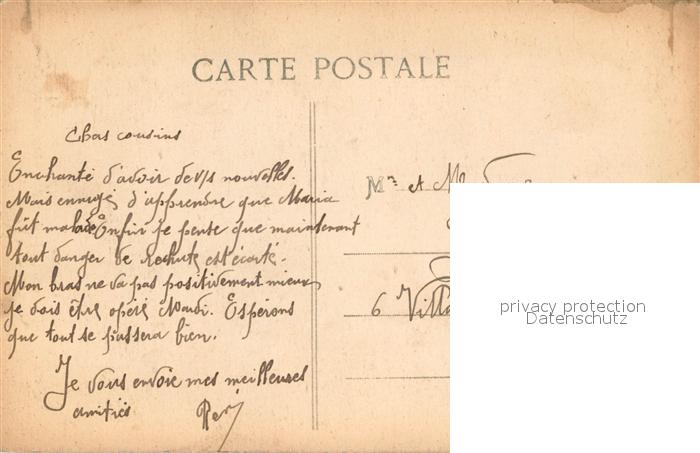 CARTE POSTALE
Chers cousins
Enchanté d'avoir de v/s nouvelles.
Mais ennuyé d'apprendre que Maria
fût malade Enfin je pense que maintenant
tout danger de rechute est écarté.
Mon bras ne va pas positivement mieux
je dois être opéré Mardi. Espérons
que tout se passera bien.
Je vous envoie mes meilleures
amitiés
Mr et Me
6 Villa
privacy protection
Datenschutz